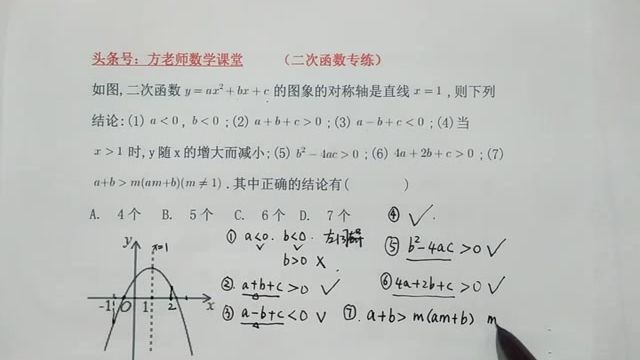 头条号：方老师数学课堂 （二次函数专练）
如图,二次函数 y=ax²+bx+c 的图象的对称轴是直线 x=1 ,则下列
结论:(1) a<0, b<0 ;(2) a+b+c>0 ;(3) a−b+c<0 ;(4)当
x>1 时,y 随 x 的增大而减小;(5) b²−4ac>0 ;(6) 4a+2b+c>0 ;(7)
a+b>m(am+b)(m≠1) .其中正确的结论有( )
A. 4个 B. 5个 C. 6个 D. 7个
④ ✓
① a<0. b<0.
b>0 ×
⑤ b²-4ac>0 ✓
② a+b+c>0 ✓
⑥ 4a+2b+c>0 ✓
③ a-b+c<0 ✓
⑦. a+b> m(am+b) m
y
x=1
-1 O 1 2 x